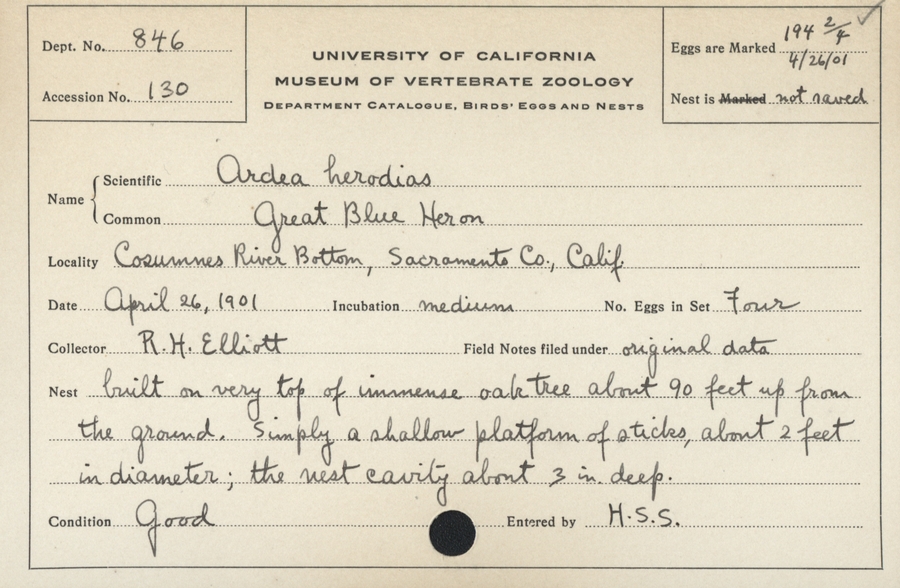 Dept. No. 846
Accession No. 130
UNIVERSITY OF CALIFORNIA
MUSEUM OF VERTEBRATE ZOOLOGY
DEPARTMENT CATALOGUE, BIRDS' EGGS AND NESTS
Eggs are Marked 194 2/4
4/26/01
Nest is Marked not saved
Name
Scientific Ardea herodias
Common Great Blue Heron
Locality Cosumnes River Bottom, Sacramento Co., Calif.
Date April 26, 1901 Incubation medium No. Eggs in Set Four
Collector R.H. Elliott Field Notes filed under original data
Nest built on very top of immense oak tree about 90 feet up from
the ground. Simply a shallow platform of sticks, about 2 feet
in diameter; the nest cavity about 3 in. deep.
Condition Good Entered by H.S.S.